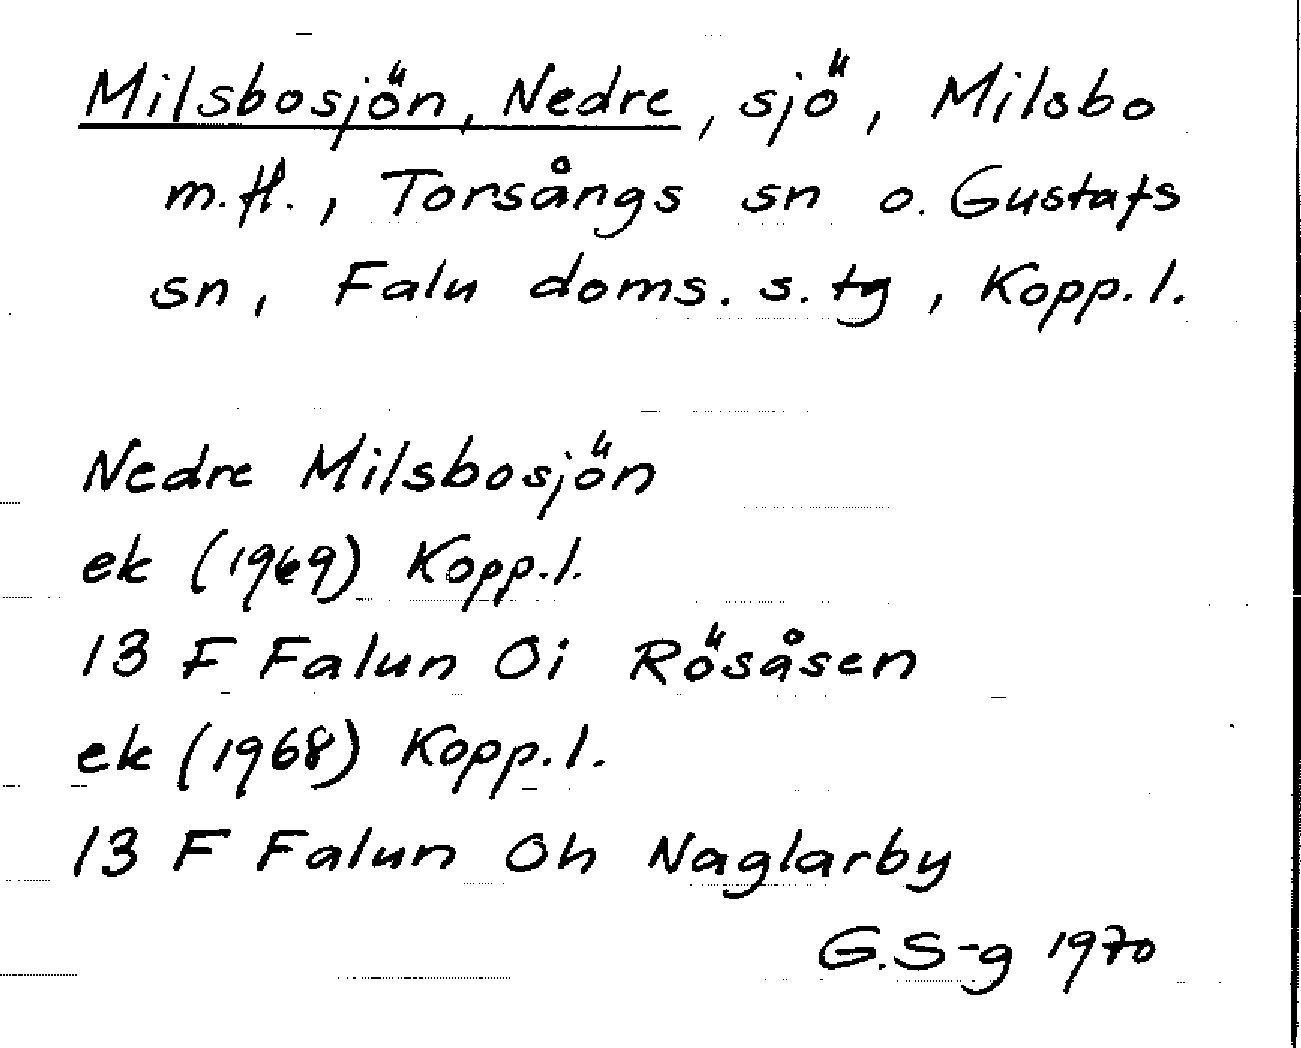 Milsbosjön, Nedre, sjö, Milsbo
m.fl., Torsångs sn o. Gustafs
sn, Falu doms. s. tg, Kopp. l.
Nedre Milsbosjön
ek (1969) Kopp. l.
13 F Falun 0i Rösåsen
ek (1968) Kopp. l.
13 F Falun 0h Naglarby
G. S-g 1970